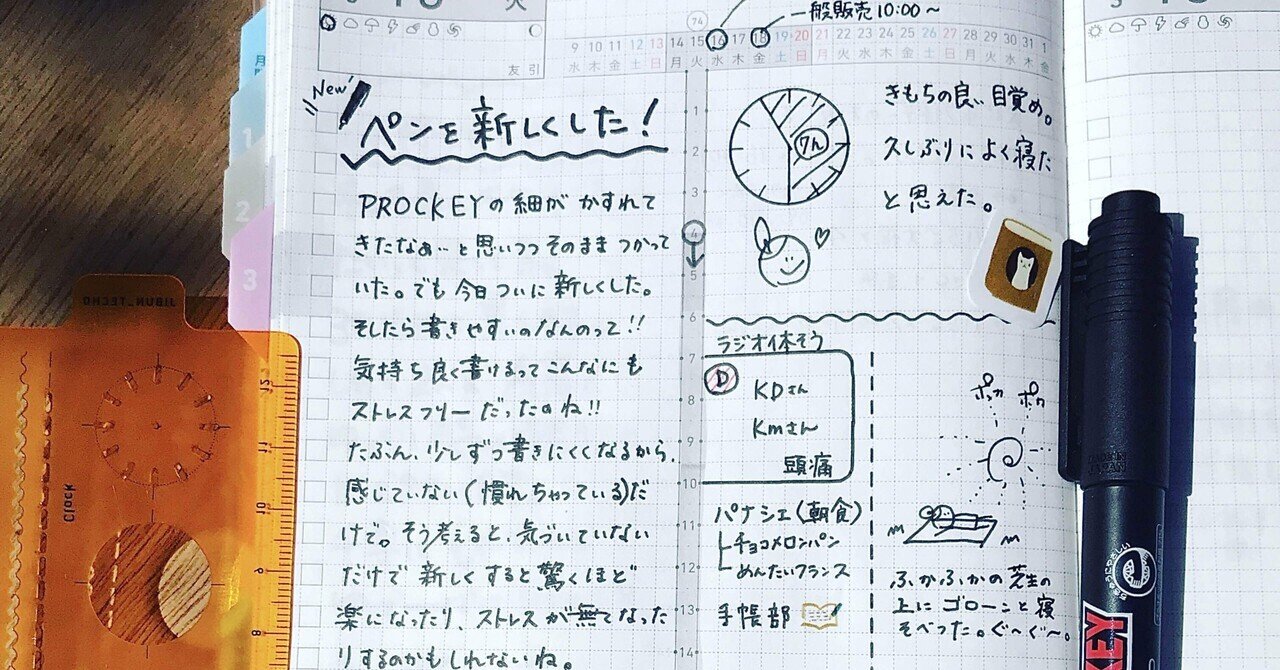 火
友引
74
一般販売10:00～
9 10 11 12 13 14 15 16 17 18 19 20 21 22 23 24 25 26 27 28 29 30 31 1
水 木 金 土 日 月 火 水 木 金 土 日 月 火 水 木 金 土 日 月 火 水 木 金
New
ペンを新しくした!
PROCKEYの細がかすれて
きたなぁ…と思いつつそのままつかって
いた。でも今日ついに新しくした。
そしたら書きやすいのなんのって!!
気持ち良く書けるってこんなにも
ストレスフリーだったのね!!
たぶん、少しずつ書きにくくなるから、
感じていない(慣れちゃっている)だ
けで。そう考えると、気づいていない
だけで新しくすると驚くほど
楽になったり、ストレスが無くなった
りするのかもしれないね。
1
2
3
4
5
6
7
8
9
10
11
12
13
14
7h
きもちの良い目覚め。
久しぶりによく寝た
と思えた。
ラジオ体そう
D
KDさん
Kmさん
頭痛
パナシェ(朝食)
チョコメロンパン
めんたいフランス
手帳部
ポカ ポカ
ふかふかの芝生の
上にゴローンと寝
そべった。ぐ～ぐ～。
月
1
2
3
JIBUN_TECHO
Clock
12
11
10
9
8
KEY